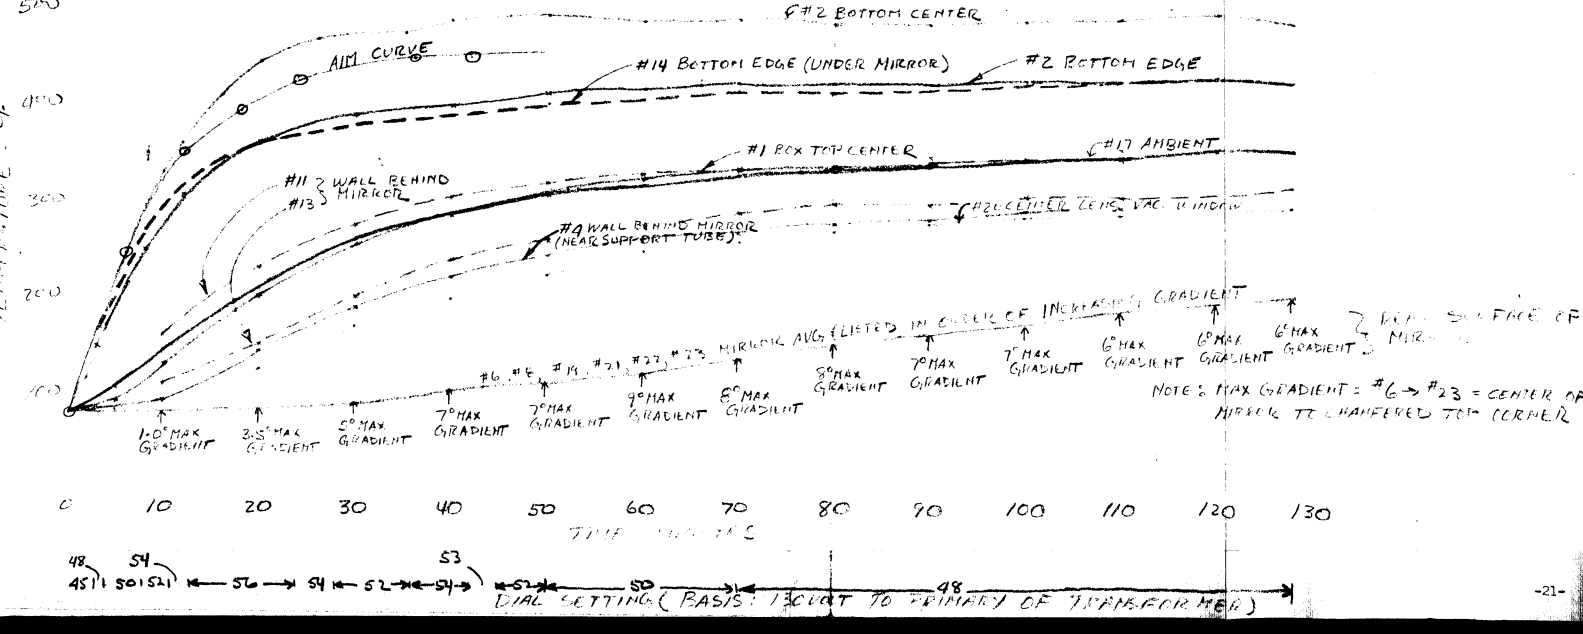 500
#2 BOTTOM CENTER
AIM CURVE
#14 BOTTOM EDGE (UNDER MIRROR)
#2 BOTTOM EDGE
400
#1 BOX TOP CENTER
#17 AMBIENT
#11
#13
WALL BEHIND
MIRROR
300
CENTER LENS VAC. WINDOW
#4 WALL BEHIND MIRROR
(NEAR SUPPORT TUBE)
200
#6, #8, #19, #21, #22, #23 MIRROR AVG (LISTED IN ORDER OF INCREASING GRADIENT
SURFACE OF
100
1.0° MAX
GRADIENT
3.5° MAX
GRADIENT
5° MAX
GRADIENT
7° MAX
GRADIENT
7° MAX
GRADIENT
9° MAX
GRADIENT
8° MAX
GRADIENT
8° MAX
GRADIENT
7° MAX
GRADIENT
7° MAX
GRADIENT
6° MAX
GRADIENT
6° MAX
GRADIENT
6° MAX
GRADIENT
NOTE: MAX GRADIENT = #6 → #23 = CENTER OF
MIRROR TO CHAMFERED TOP CORNER
0 10 20 30 40 50 60 70 80 90 100 110 120 130
TIME
48 54 53
45 50 52 56 54 52 54 52 50 48
DIAL SETTING (BASIS: 130 VOLT TO PRIMARY OF TRANSFORMER)
-21-